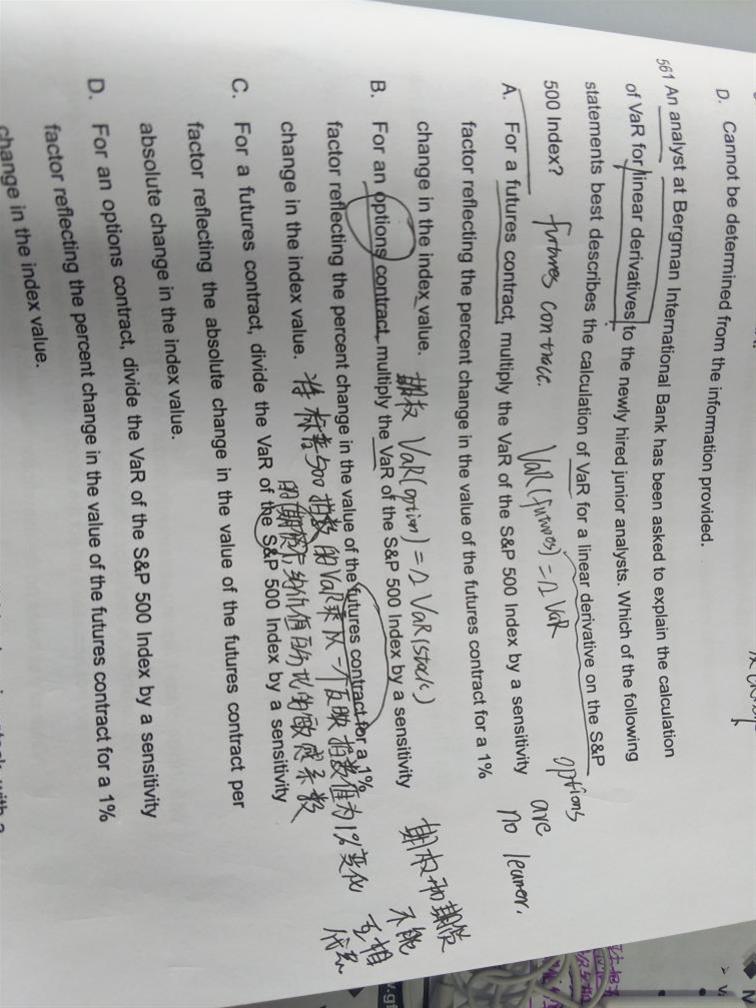 D. Cannot be determined from the information provided.
561 An analyst at Bergman International Bank has been asked to explain the calculation
of VaR for linear derivatives to the newly hired junior analysts. Which of the following
statements best describes the calculation of VaR for a linear derivative on the S&P
500 Index?
futures contracc.
VaR(futures) = Δ VaR
options
are
no leanor.
A. For a futures contract, multiply the VaR of the S&P 500 Index by a sensitivity
factor reflecting the percent change in the value of the futures contract for a 1%
change in the index value.
期权 VaR(option) = Δ VaR(stock)
B. For an options contract, multiply the VaR of the S&P 500 Index by a sensitivity
factor reflecting the percent change in the value of the futures contract for a 1%
change in the index value.
将标普500指数的VaR乘以一个反映指数值为1%变化
的期权合约价值百分比的敏感系数
期权和期货
不能
互相
代替
C. For a futures contract, divide the VaR of the S&P 500 Index by a sensitivity
factor reflecting the absolute change in the value of the futures contract per
absolute change in the index value.
D. For an options contract, divide the VaR of the S&P 500 Index by a sensitivity
factor reflecting the percent change in the value of the futures contract for a 1%
change in the index value.